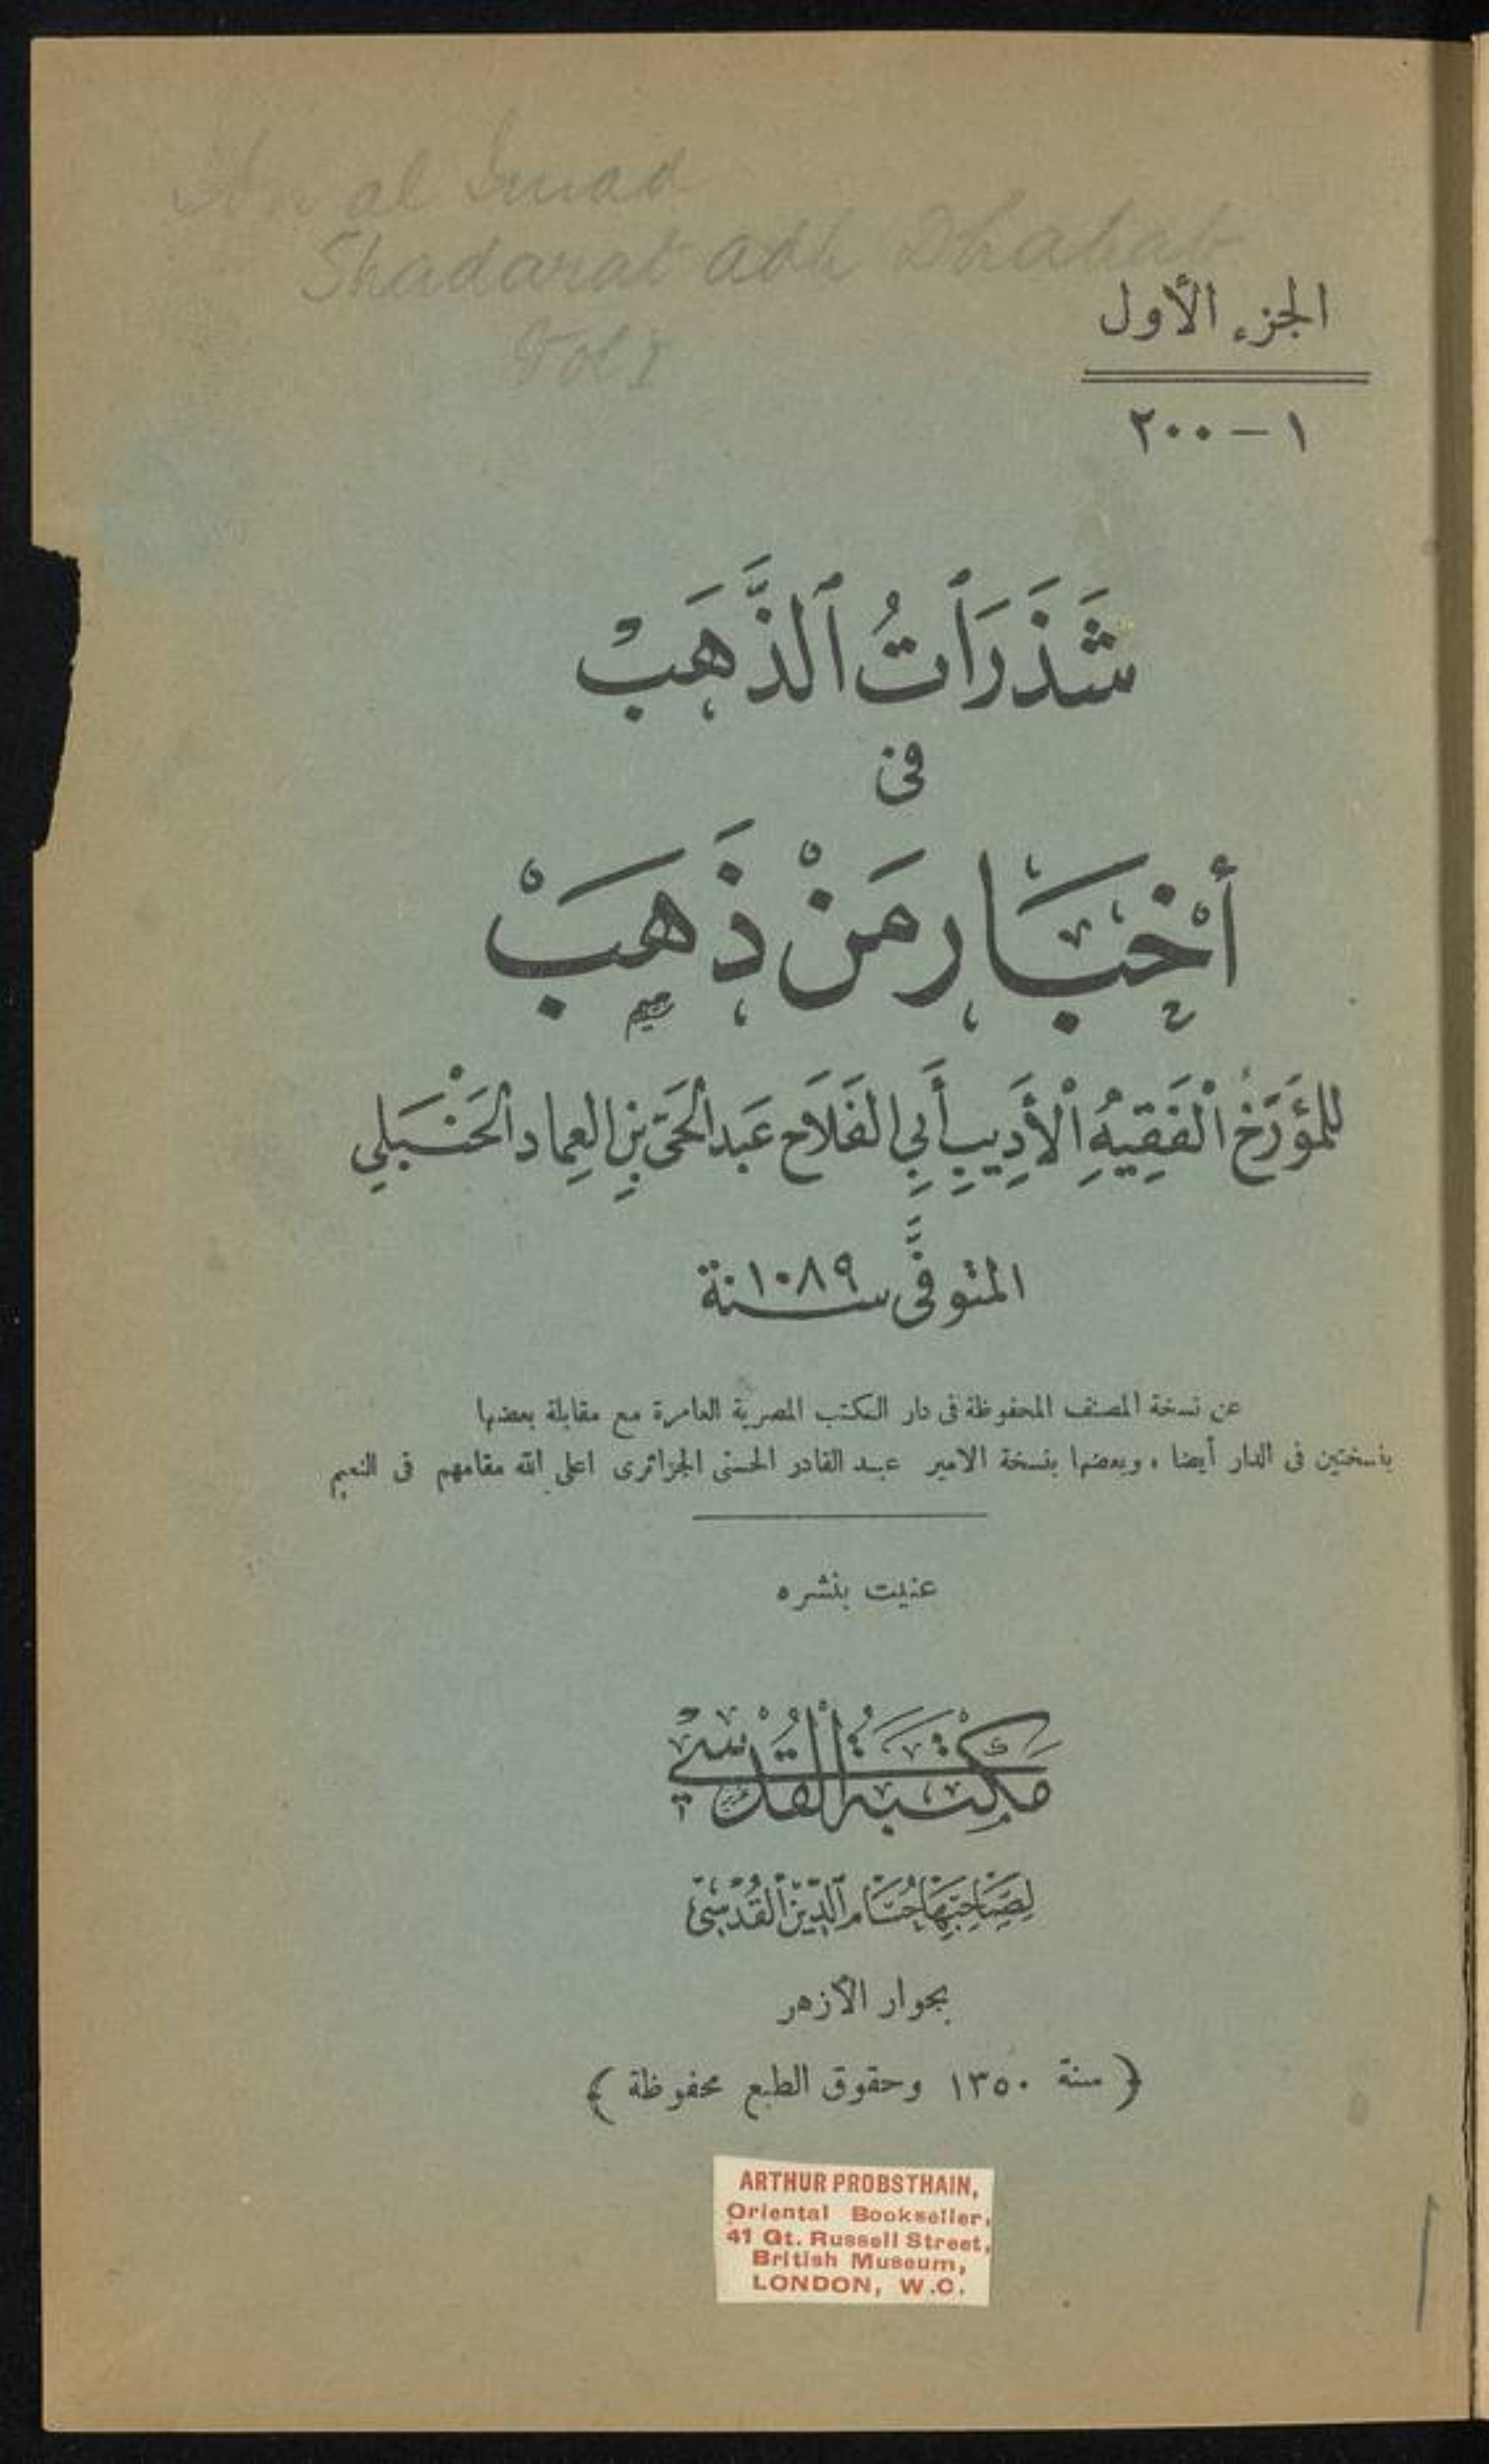 Ibn al Imad
Shadarat adh Dhahab
Vol I
الجزء الأول
١ – ٢٠٠
شَذَرَاتُ ٱلذَّهَبْ
فى
أَخْبَار مَنْ ذَهَبْ
للمؤَرّخ الْفَقِيهِ الْأَدِيبِ أَبِي الفَلَاح عَبد الحَىّ بنِ العِماد الحَنْبَلي
المتوفَّى سنة ١٠٨٩
عن نسخة المصنف المحفوظة فى دار الكتب المصرية العامرة مع مقابلة بعضها
بنسختين فى الدار أيضا ، وبعضها بنسخة الامير عبد القادر الحسنى الجزائرى اعلى الله مقامهم فى النعيم
عنيت بنشره
مَكْتَبَةُ الْقُدْسِي
لِصَاحِبِهَا حُسَام ٱلدِّين ٱلْقُدْسِيّ
بجوار الأزهر
﴿ سنة ١٣٥٠ وحقوق الطبع محفوظة ﴾
ARTHUR PROBSTHAIN,
Oriental Bookseller,
41 Gt. Russell Street,
British Museum,
LONDON, W.C.